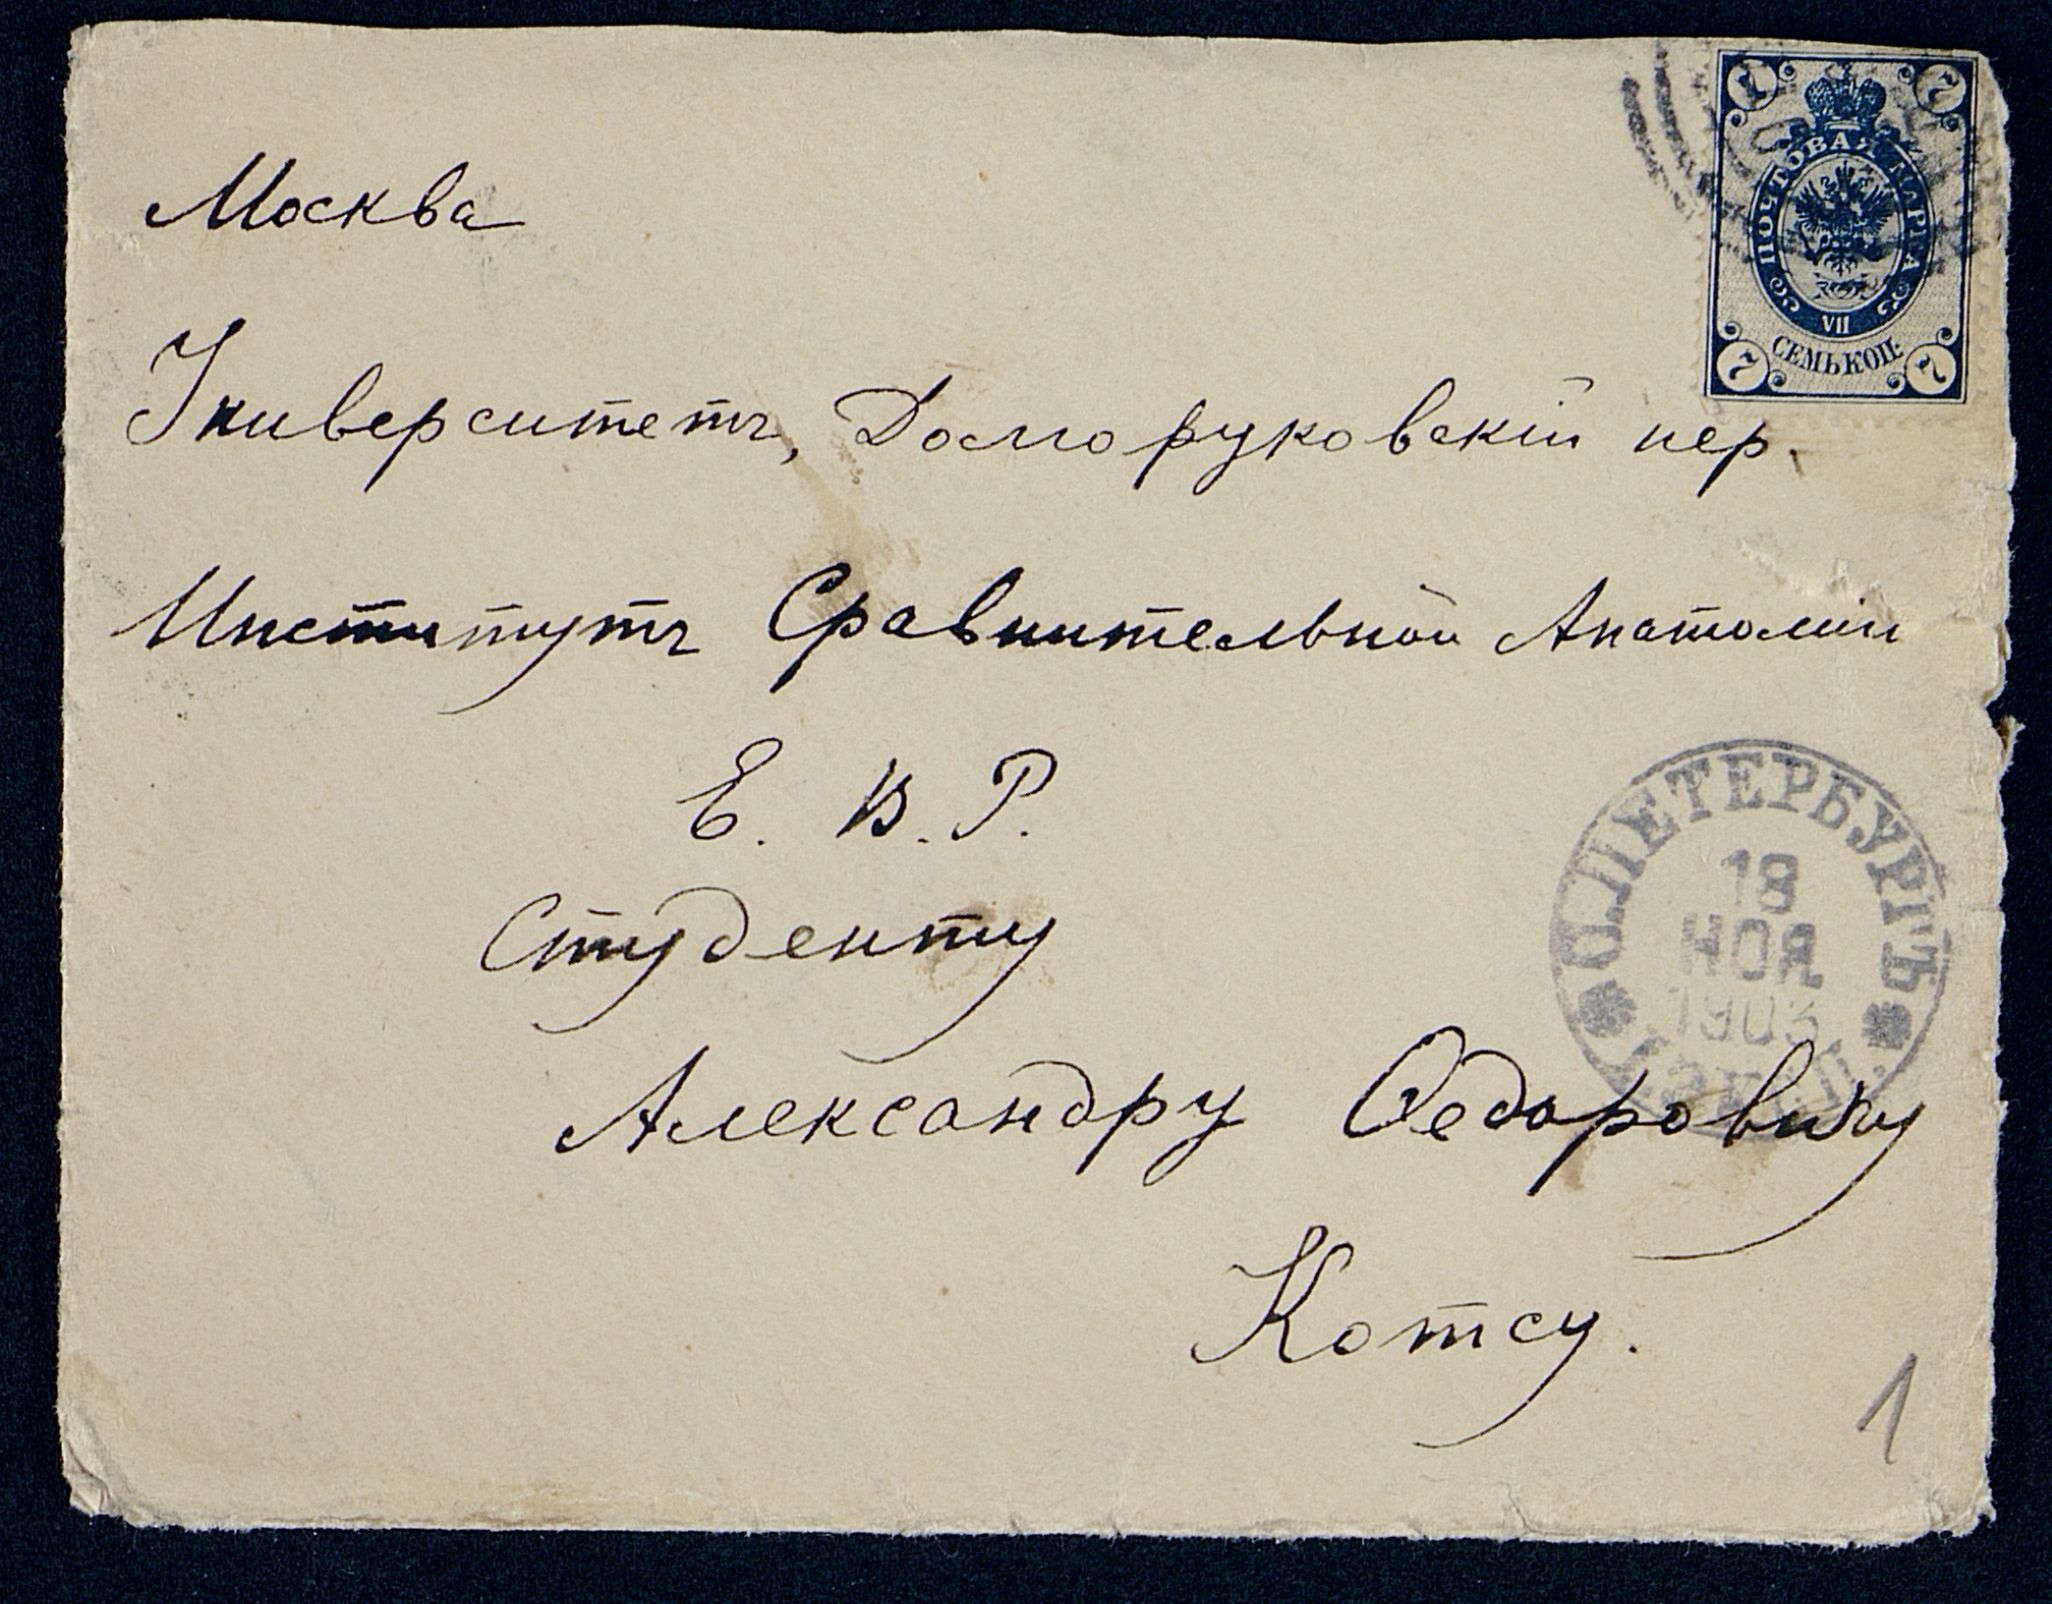 7 7
ПОЧТОВАЯ МАРКА
VII
СЕМЬ КОП.
7 7
Москва
Университетъ, Долгоруковскій пер.
Институтъ Сравнительной Анатоміи
Е. В. Р.
Студенту
Александру Ѳедоровичу
Котсу.
С.ПЕТЕРБУРГЪ
18
НОЯ
1903
1